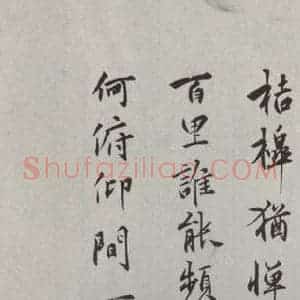 桔槔猶惮
百里誰能頻
何俯仰間
Shufaziliao.COM